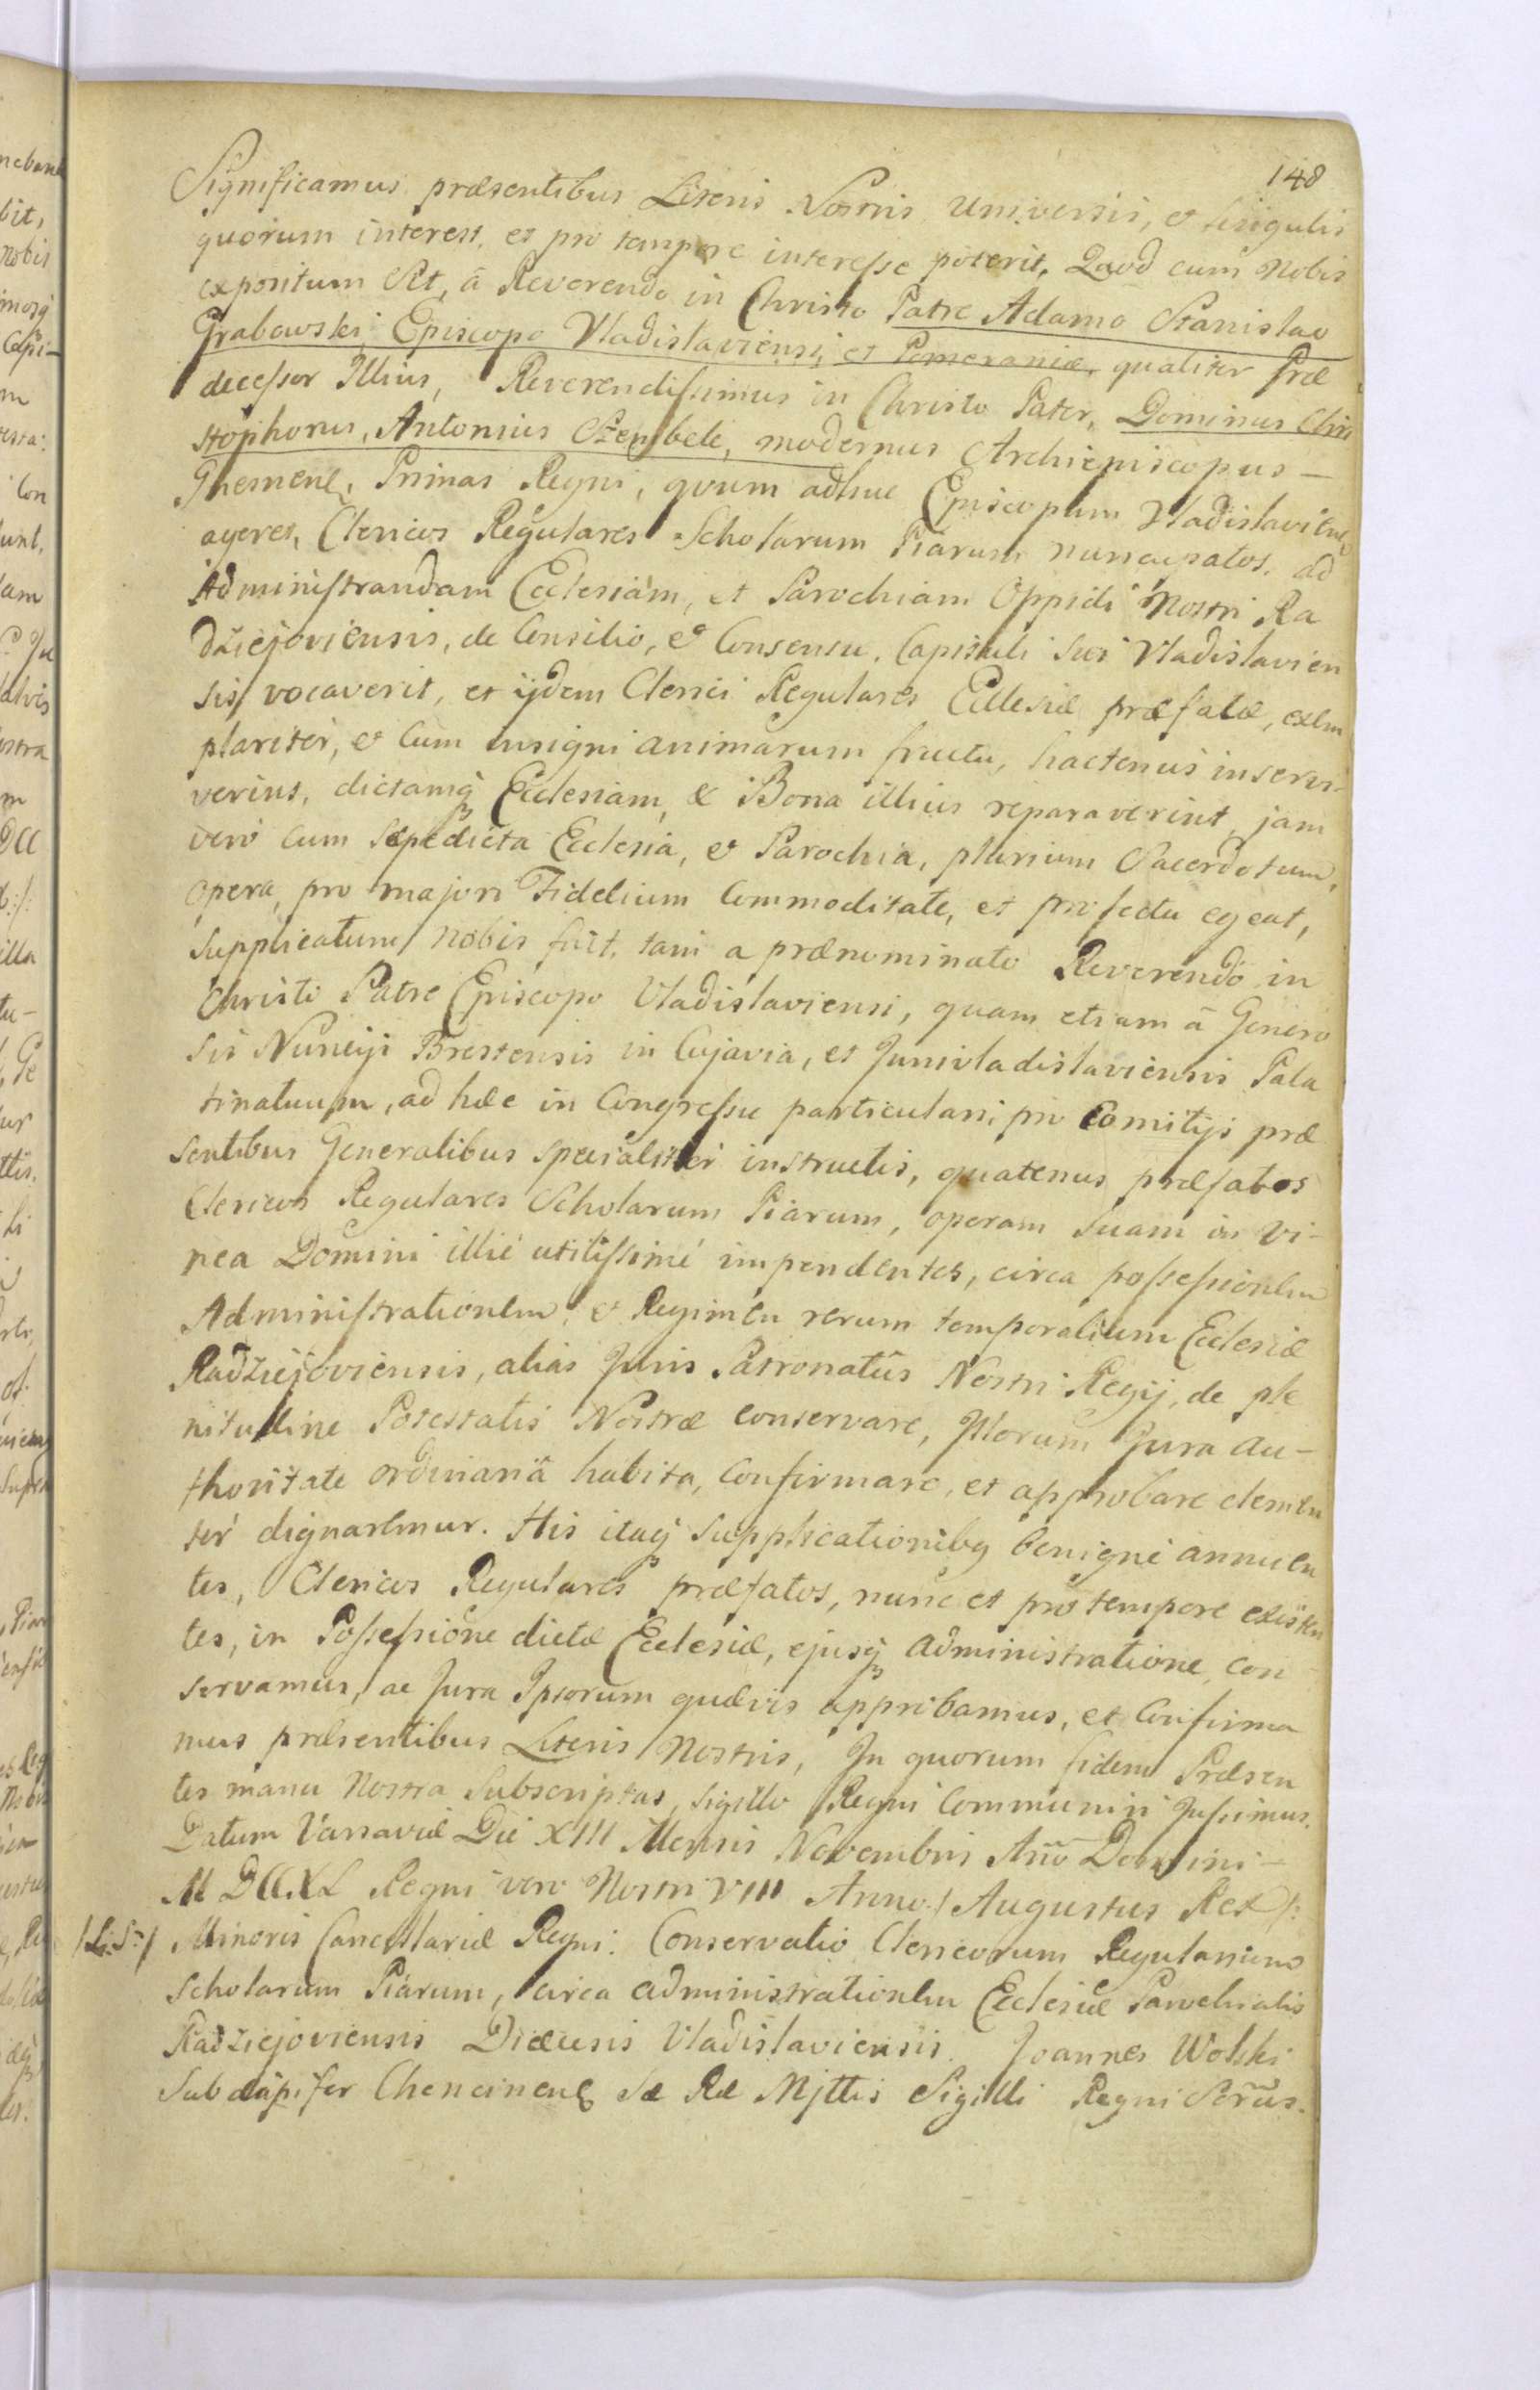 148
Significamus præsentibus Literis Nostris Universis, et singulis
quorum interest, et pro tempore interesse poterit, Quod cum Nobis
expositum sit, â Reverendo in Christo Patre Adamo Stanislao
Grabowski Episcopo Vladislaviensi, et Pomeraniæ, qualiter Præ
decessor Illius, Reverendissimus in Christo Pater, Dominus Chri
stophorus, Antonius Szembek, modernus Archiepiscopus –
Gnesnen, Primas Regni, quum adhuc Episcopum Vladislavien
ageret, Clericos Regulares Scholarum Piarum nuncupatos, ad
Administrandam Ecclesiam, et Parochiam Oppidi Nostri Ra
dziejoviensis, de Consilio, et Consensu, Capituli sui Vladislavien
sis vocaverit, et ijdem Clerici Regulares Ecclesiæ præfatæ, exem
plariter, et cum insigni animarum fructu, hactenus inservi-
verint, dictamq Ecclesiam, & Bona illius reparaverint, jam
verò cum sæpedicta Ecclesia, et Parochia, plurium Sacerdotum,
opera, pro majori Fidelium Commoditate, et profectu egeat,
supplicatum nobis fuit, tam a prænominato Reverendo in
Christo Patre Episcopo Vladislaviensi, quam etiam â Genero
sis Nuncijs Brestensis in Cujavia, et Junivladislaviensis Pala
tinatuum, ad hæc in Congressu particulari, pro Comitijs præ
sentibus Generalibus specialiter instructis, quatenus præfatos
Clericos Regulares Scholarum Piarum, operam suam in vi-
nea Domini illic utilissimè impendentes, circa possessionem
Administrationem, et Regimen rerum temporalium Ecclesiæ
Radziejoviensis, alias Juris Patronatûs Nostri Regij, de ple
nitudine Potestatis Nostræ conservare, Illorum Jura au-
thoritate ordinariâ habita, Confirmare, et approbare clemen
ter dignaremur. His itaq supplicationibq benignè annuen
tes, Clericos Regulares præfatos, nunc et pro tempore existen
tes, in Possessione dictæ Ecclesiæ, ejusq administratione, con
servamus, ac Jura Ipsorum quævis approbamus, et Confirma
mus præsentibus Literis Nostris, In quorum fidem Præsen
tes manu Nostra subscriptas, sigillo Regni Communiri jussimus.
Datum Varsaviæ Die XIII Mensis Novembris Año Domini –
M DCCXL Regni vero Nostri VIII Anno / Augustus Rex /:
/L:S:/ Minoris Cancellariæ Regni. Conservatio Clericorum Regularium
Scholarum Piarum, circa administrationem Ecclesiæ Parochialis
Radziejoviensis Diæcesis Vladislaviensis. Joannes Wolski
Subdapifer Chencinen Sæ Ræ Mjttis Sigilli Regni Sẽrus.